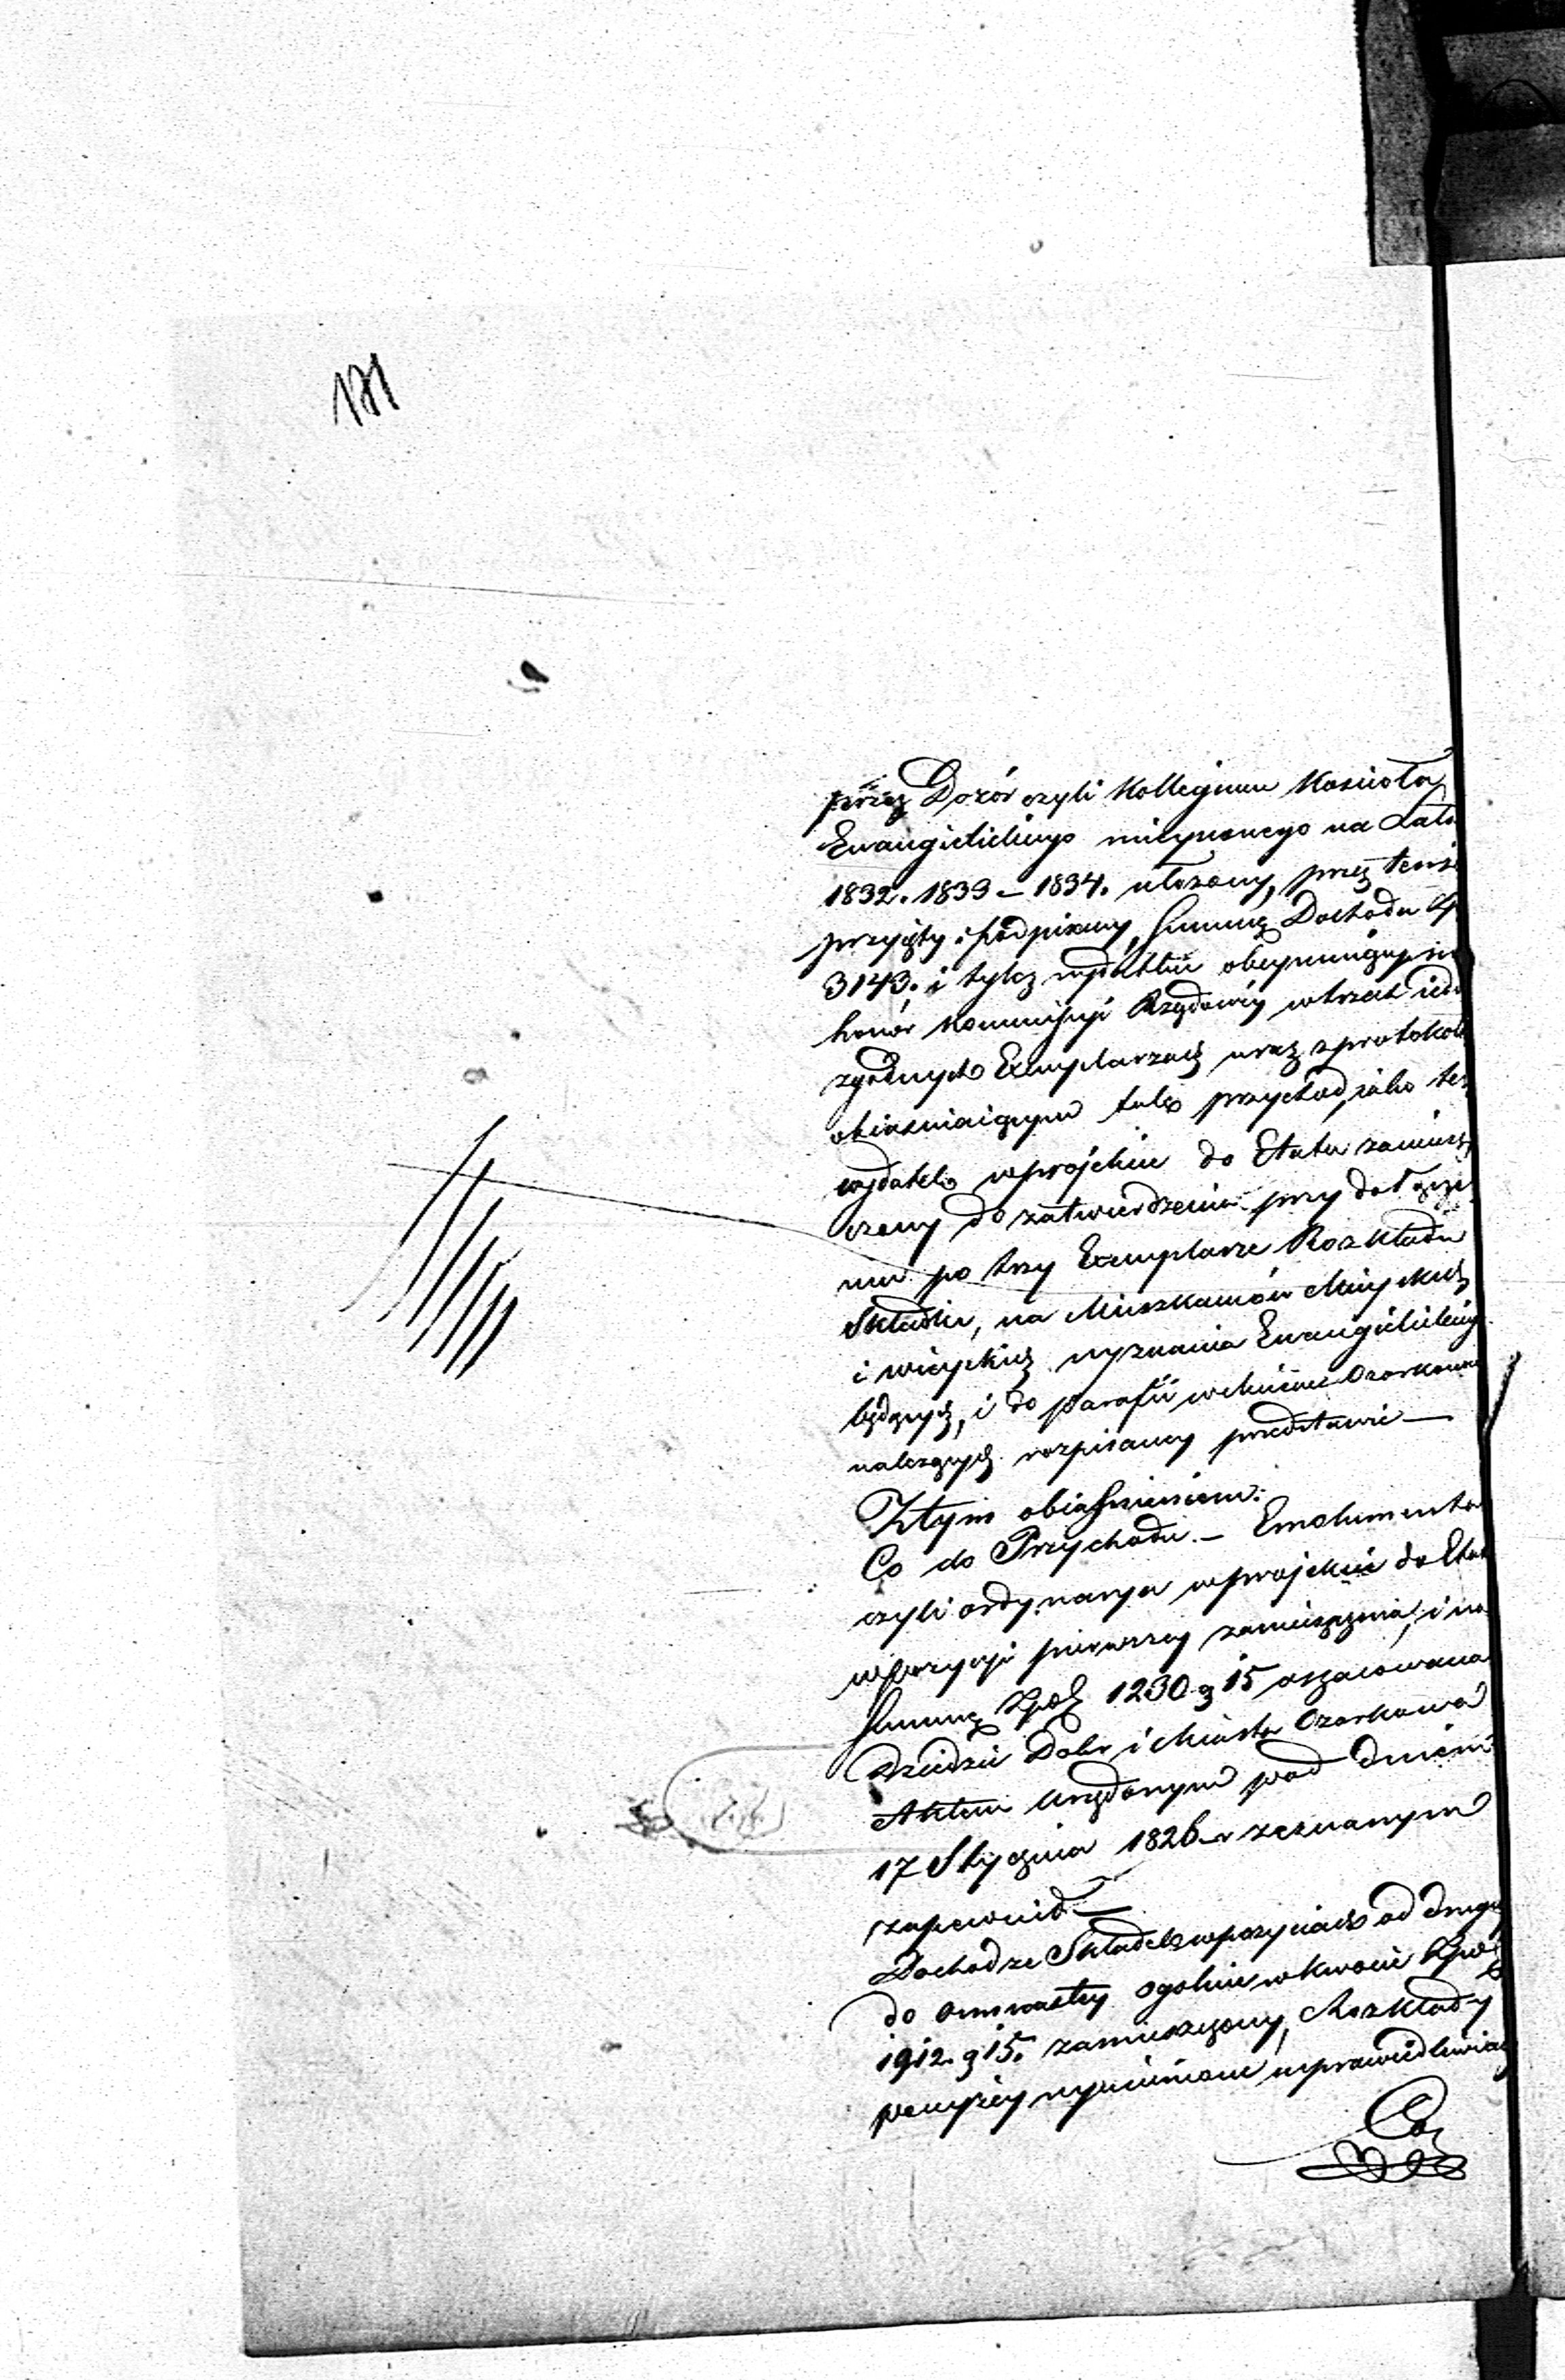 121
przez Dozór czyli Kollegium Kościoła
Ewangielickiego miłyscowego na Lata
1832. 1833 – 1834. ułożony, przez tenże
przyjęty i podpisany, Summę Dochodu
3143. i tyleż wydatku obeymuiący
honór Kommissyi Rządowéy w trzech
zgodnych Exemplarzach wraz z protokołe
obiaśniaiącym tak przychód, iako też
wydatek w projekcie do Etatu zamiesz
czony do zatwierdzenia przy dołącze
niu po trzy Exemplarze Rozkładu
Składki, na Mieszkańców Mieyskich
i wieyskich wyznania Ewangielickiego
będących, i do parafii w mieście Ozorkowie
należących rozpisaney przedstawić —
Z tym obiaśnieniem:
Co do Przychodu. – Emolumenta
czyli ordynarya w projekcie do Etat
w pozycyi pierwszey zamieszczona, i na
Summę Zpol 1230 g 15 oszacowana
Dziedzic Dóbr i Miasta Ozorkowa
Aktem Urzędowym pod dniem
17 Stycznia 1826 r zeznanym
zapewnił —
Dochod ze Składek w pozyciach od drugiey
do osmnastey ogolnie w kwocie Zpol
1912. g 15. zamieszczony, Rozkłady
powyżey wymienione usprawiedliwiaią
Co